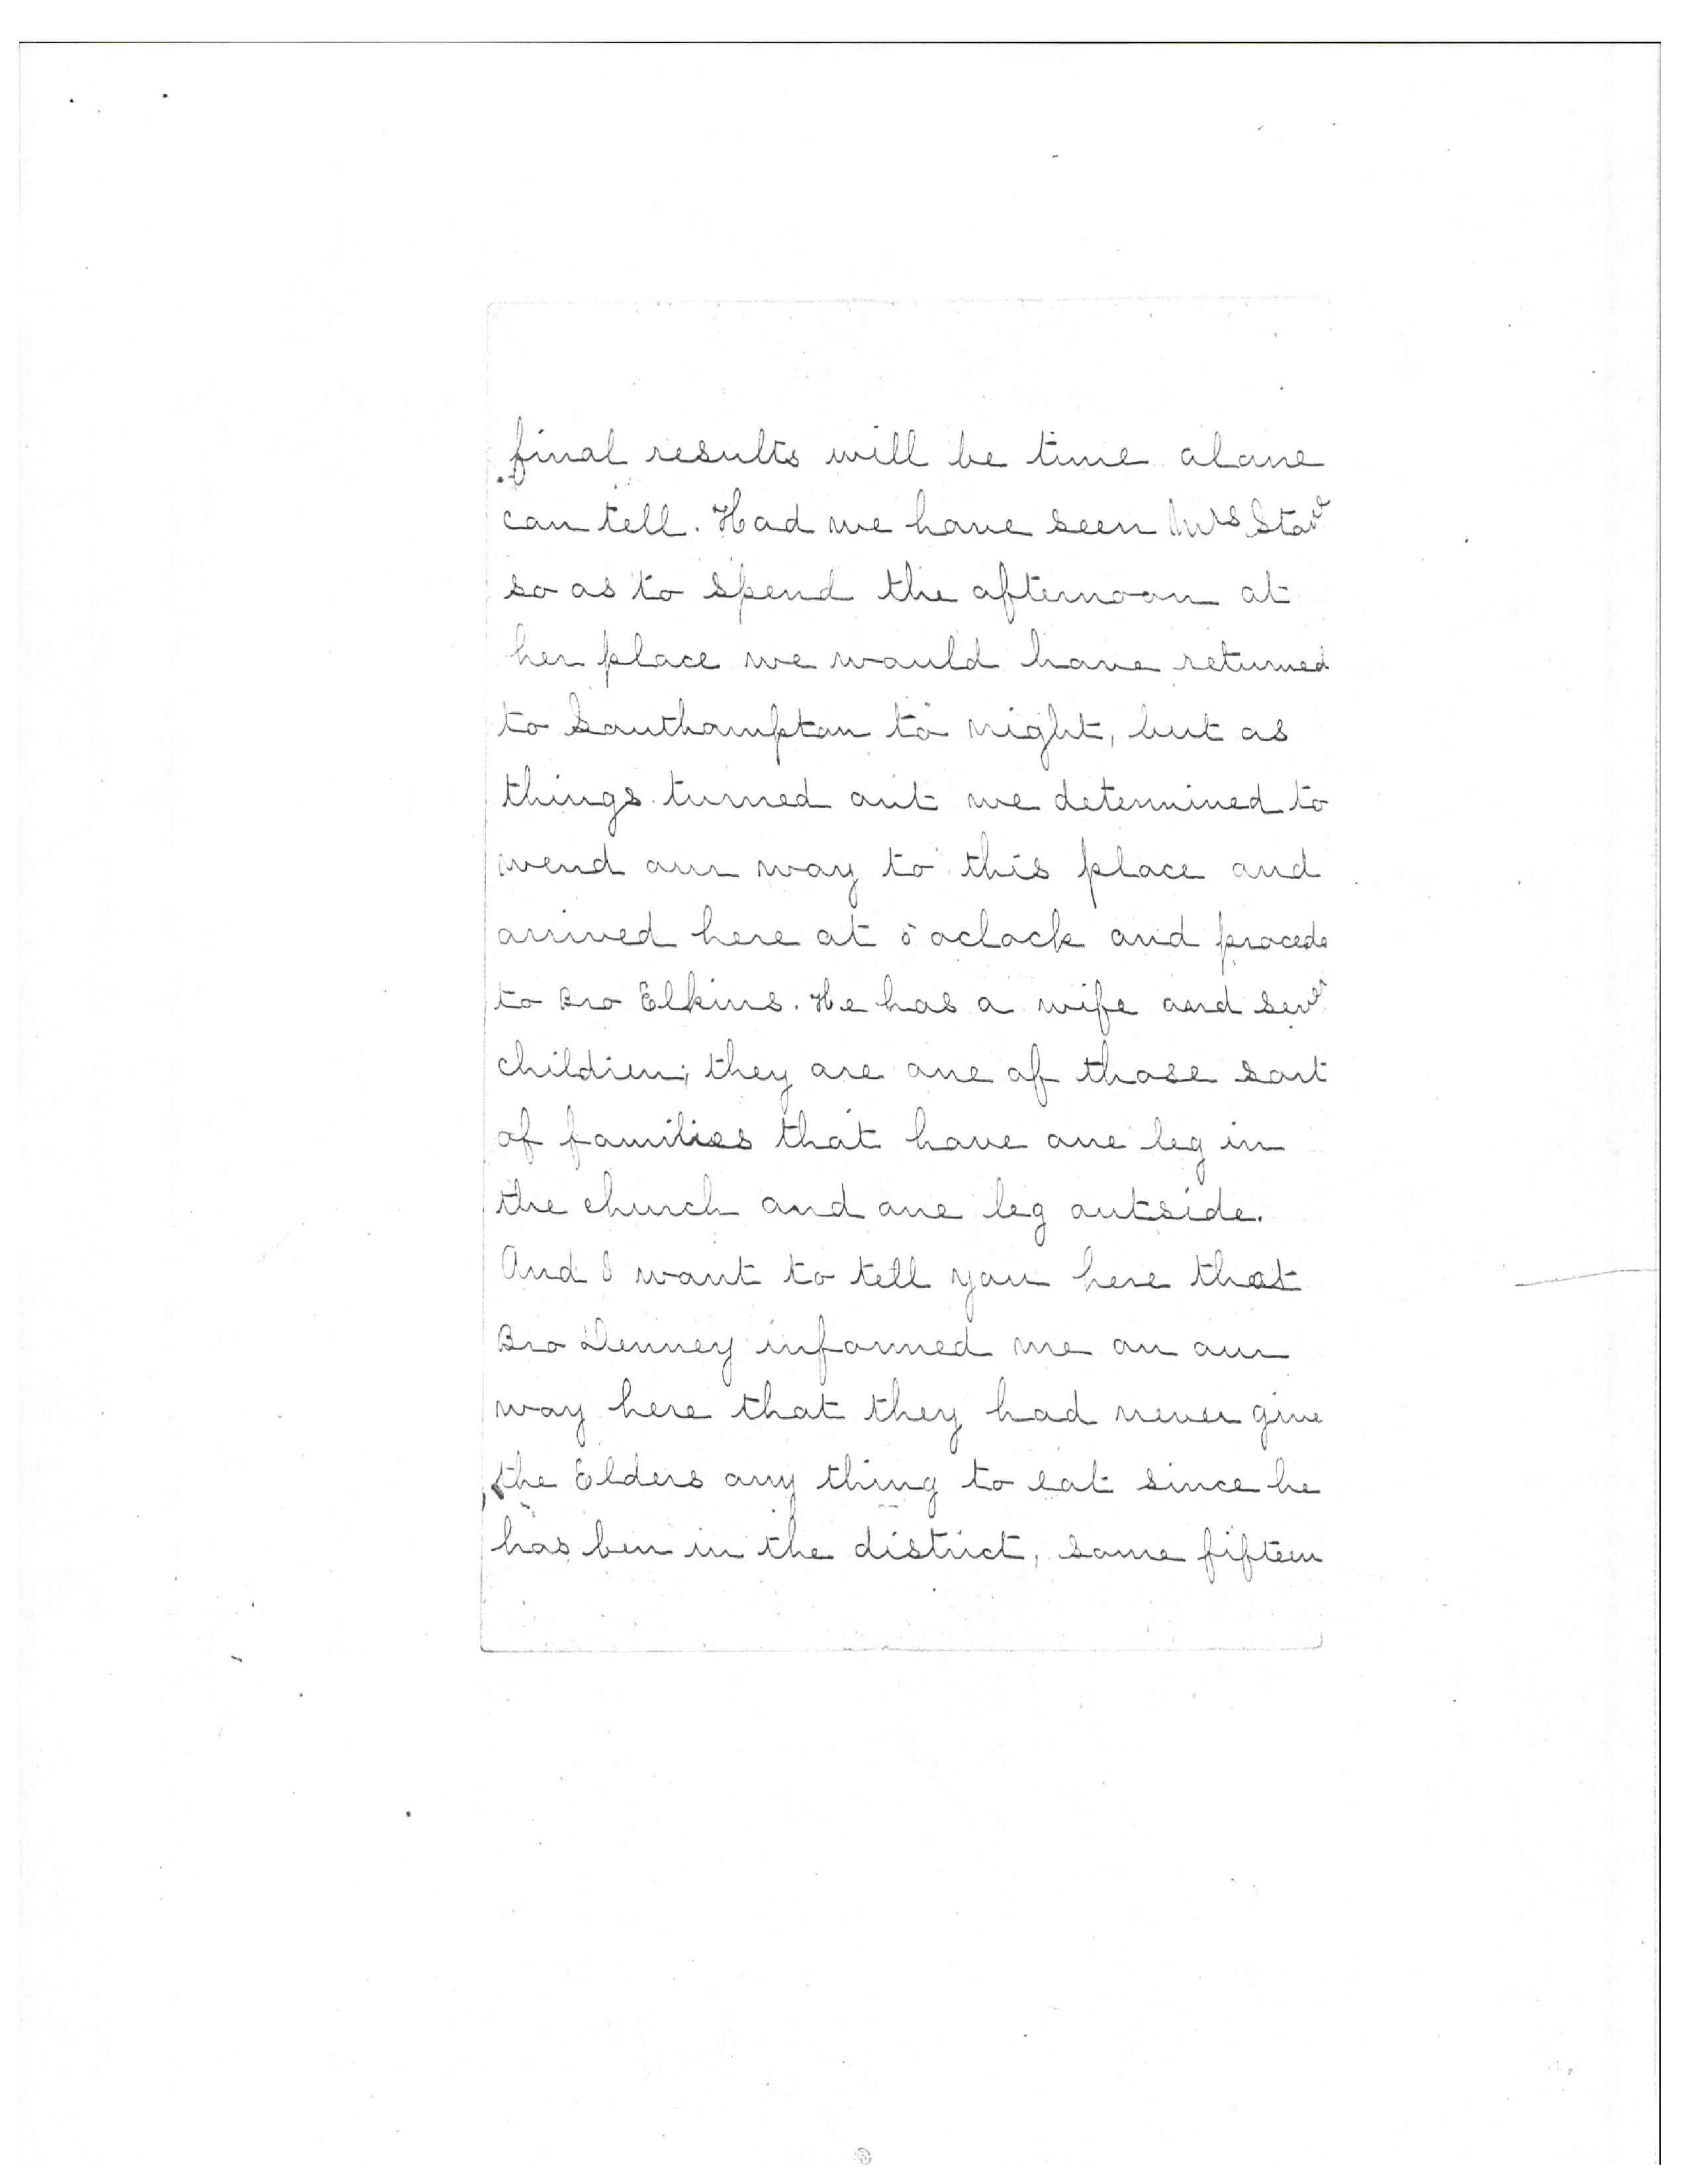 final results will be time alone
can tell. Had we have seen Mrs
so as to spend the afternoon at
her place we would have returned
to Southampton to night, but as
things turned out we determined to
wend our way to this place and
arrived here at 5 oclock and procede
to Bro Elkins. He has a wife and
children; they are one of those sort
of families that have one leg in
the church and one leg outside.
And I want to tell you here that
Bro Denney informed me on our
way here that they had never give
the Elders any thing to eat since he
has ben in the district, some fifteen